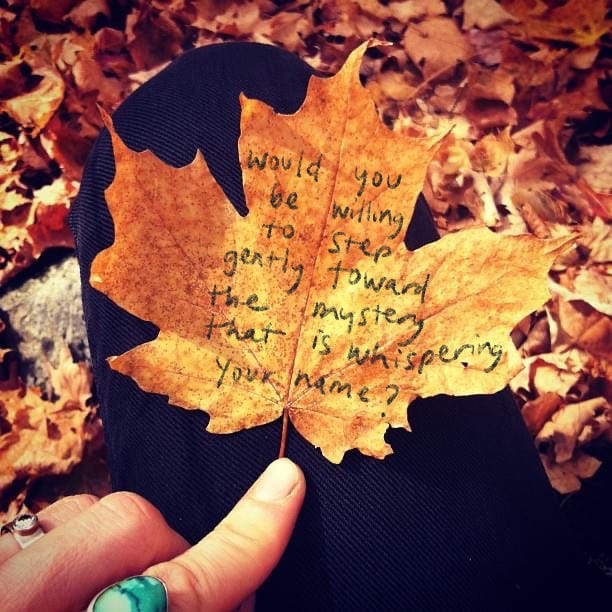 would you
be willing
to step
gently toward
the mystery
that is whispering
your name?